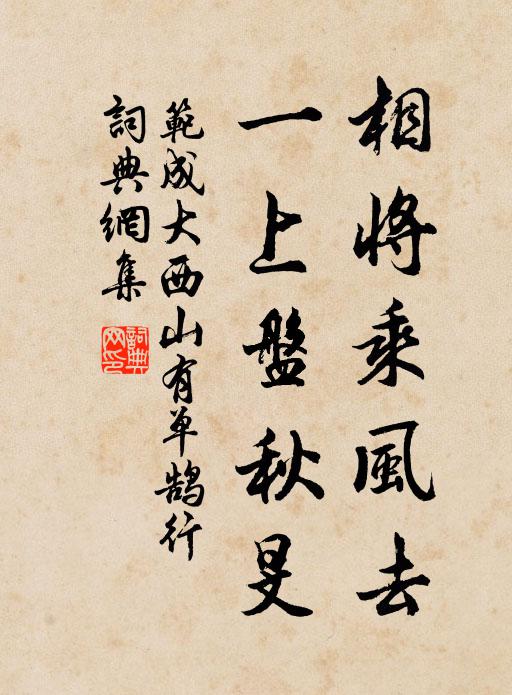 相將乘風去
一上盤秋旻
範成大西山有单鵠行
詞典網集
詞典
网印